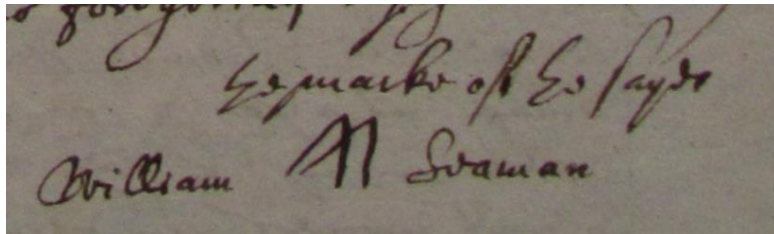 the marke of the sayde
William M Seaman